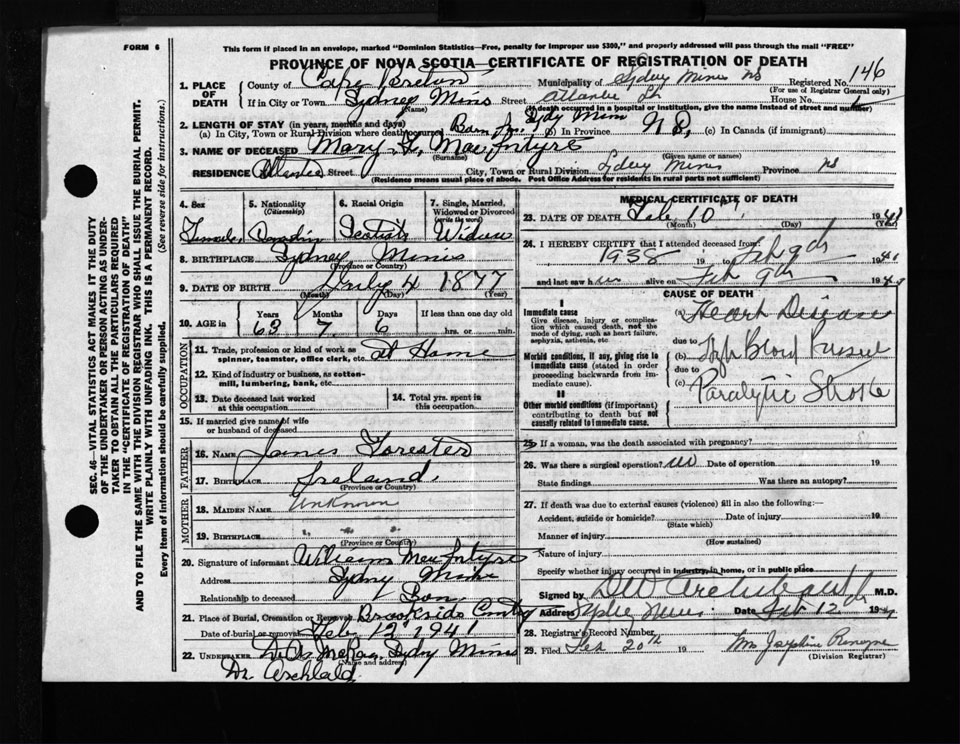 FORM 6
This form if placed in an envelope, marked "Dominion Statistics—Free, penalty for improper use $300," and properly addressed will pass through the mail "FREE"
PROVINCE OF NOVA SCOTIA—CERTIFICATE OF REGISTRATION OF DEATH
1. PLACE OF DEATH
County of Cape Breton Municipality of Sydney Mines NS Registered No. 146
(For use of Registrar General only)
If in City or Town Sydney Mines Street Atlantic House No.
(Name) (If death occurred in a hospital or institution, give the name instead of street and number)
2. LENGTH OF STAY (in years, months and days)
(a) In City, Town or Rural Division where death occurred Born in Sydy Mines (b) In Province (c) In Canada (if immigrant)
3. NAME OF DECEASED Mary Mac Intyre
(Surname) (Given name or names)
RESIDENCE Atlantic Street City, Town or Rural Division Sydney Mines Province NS
(Residence means usual place of abode. Post Office Address for residents in rural parts not sufficient)
4. Sex 5. Nationality (Citizenship) 6. Racial Origin 7. Single, Married, Widowed or Divorced (write the word)
Female Scotish Widow
8. BIRTHPLACE Sydney Mines
(Province or Country)
9. DATE OF BIRTH July 4 1877
(Month) (Day) (Year)
10. AGE in Years Months Days If less than one day old
63 7 6 hrs. or min.
OCCUPATION
11. Trade, profession or kind of work as spinner, teamster, office clerk, etc. At Home
12. Kind of industry or business, as cotton-mill, lumbering, bank, etc.
13. Date deceased last worked at this occupation
14. Total yrs. spent in this occupation
15. If married give name of wife or husband of deceased
FATHER
16. NAME James Forester
17. BIRTHPLACE Ireland
(Province or Country)
MOTHER
18. MAIDEN NAME Unknown
19. BIRTHPLACE
(Province or Country)
20. Signature of informant William Mac Intyre
Address Sydny Mines
Relationship to deceased Son
21. Place of Burial, Cremation or Removal Brookside
Date of burial or removal Feb. 12 1941
22. UNDERTAKER Sydny Mines
(Name and address)
Dr Archbald
MEDICAL CERTIFICATE OF DEATH
23. DATE OF DEATH Feb 10 1941
(Month) (Day) (Year)
24. I HEREBY CERTIFY that I attended deceased from:
1938 19 to Feb 9th 1941
and last saw h alive on Feb 9th 19
CAUSE OF DEATH
I
Immediate cause
Give disease, injury or complication which caused death, not the mode of dying, such as heart failure, asphyxia, asthenia, etc
(a) Heart Disease
due to
Morbid conditions, if any, giving rise to immediate cause (stated in order proceeding backwards from immediate cause).
(b) High Blood Pressure
due to
(c) Paralytic Stroke
II
Other morbid conditions (if important) contributing to death but not causally related to immediate cause.
25. If a woman, was the death associated with pregnancy?
26. Was there a surgical operation? no Date of operation 19
State findings Was there an autopsy?
27. If death was due to external causes (violence) fill in also the following:—
Accident, suicide or homicide? Date of injury 19
(State which)
Manner of injury
(How sustained)
Nature of injury
Specify whether injury occurred in industry, in home, or in public place
Signed by DW Archibald M.D.
Address Sydney Mines Date Feb 12 19
28. Registrar's Record Number
29. Filed Feb 20th 19 Mrs Josephine
(Division Registrar)
SEC. 46—VITAL STATISTICS ACT MAKES IT THE DUTY
OF THE UNDERTAKER OR PERSON ACTING AS UNDER-
TAKER TO OBTAIN ALL THE PARTICULARS REQUIRED
IN THE "CERTIFICATE OF REGISTRATION OF DEATH"
AND TO FILE THE SAME WITH THE DIVISION REGISTRAR WHO SHALL ISSUE THE BURIAL PERMIT.
WRITE PLAINLY WITH UNFADING INK. THIS IS A PERMANENT RECORD.
Every item of information should be carefully supplied. (See reverse side for instructions.)